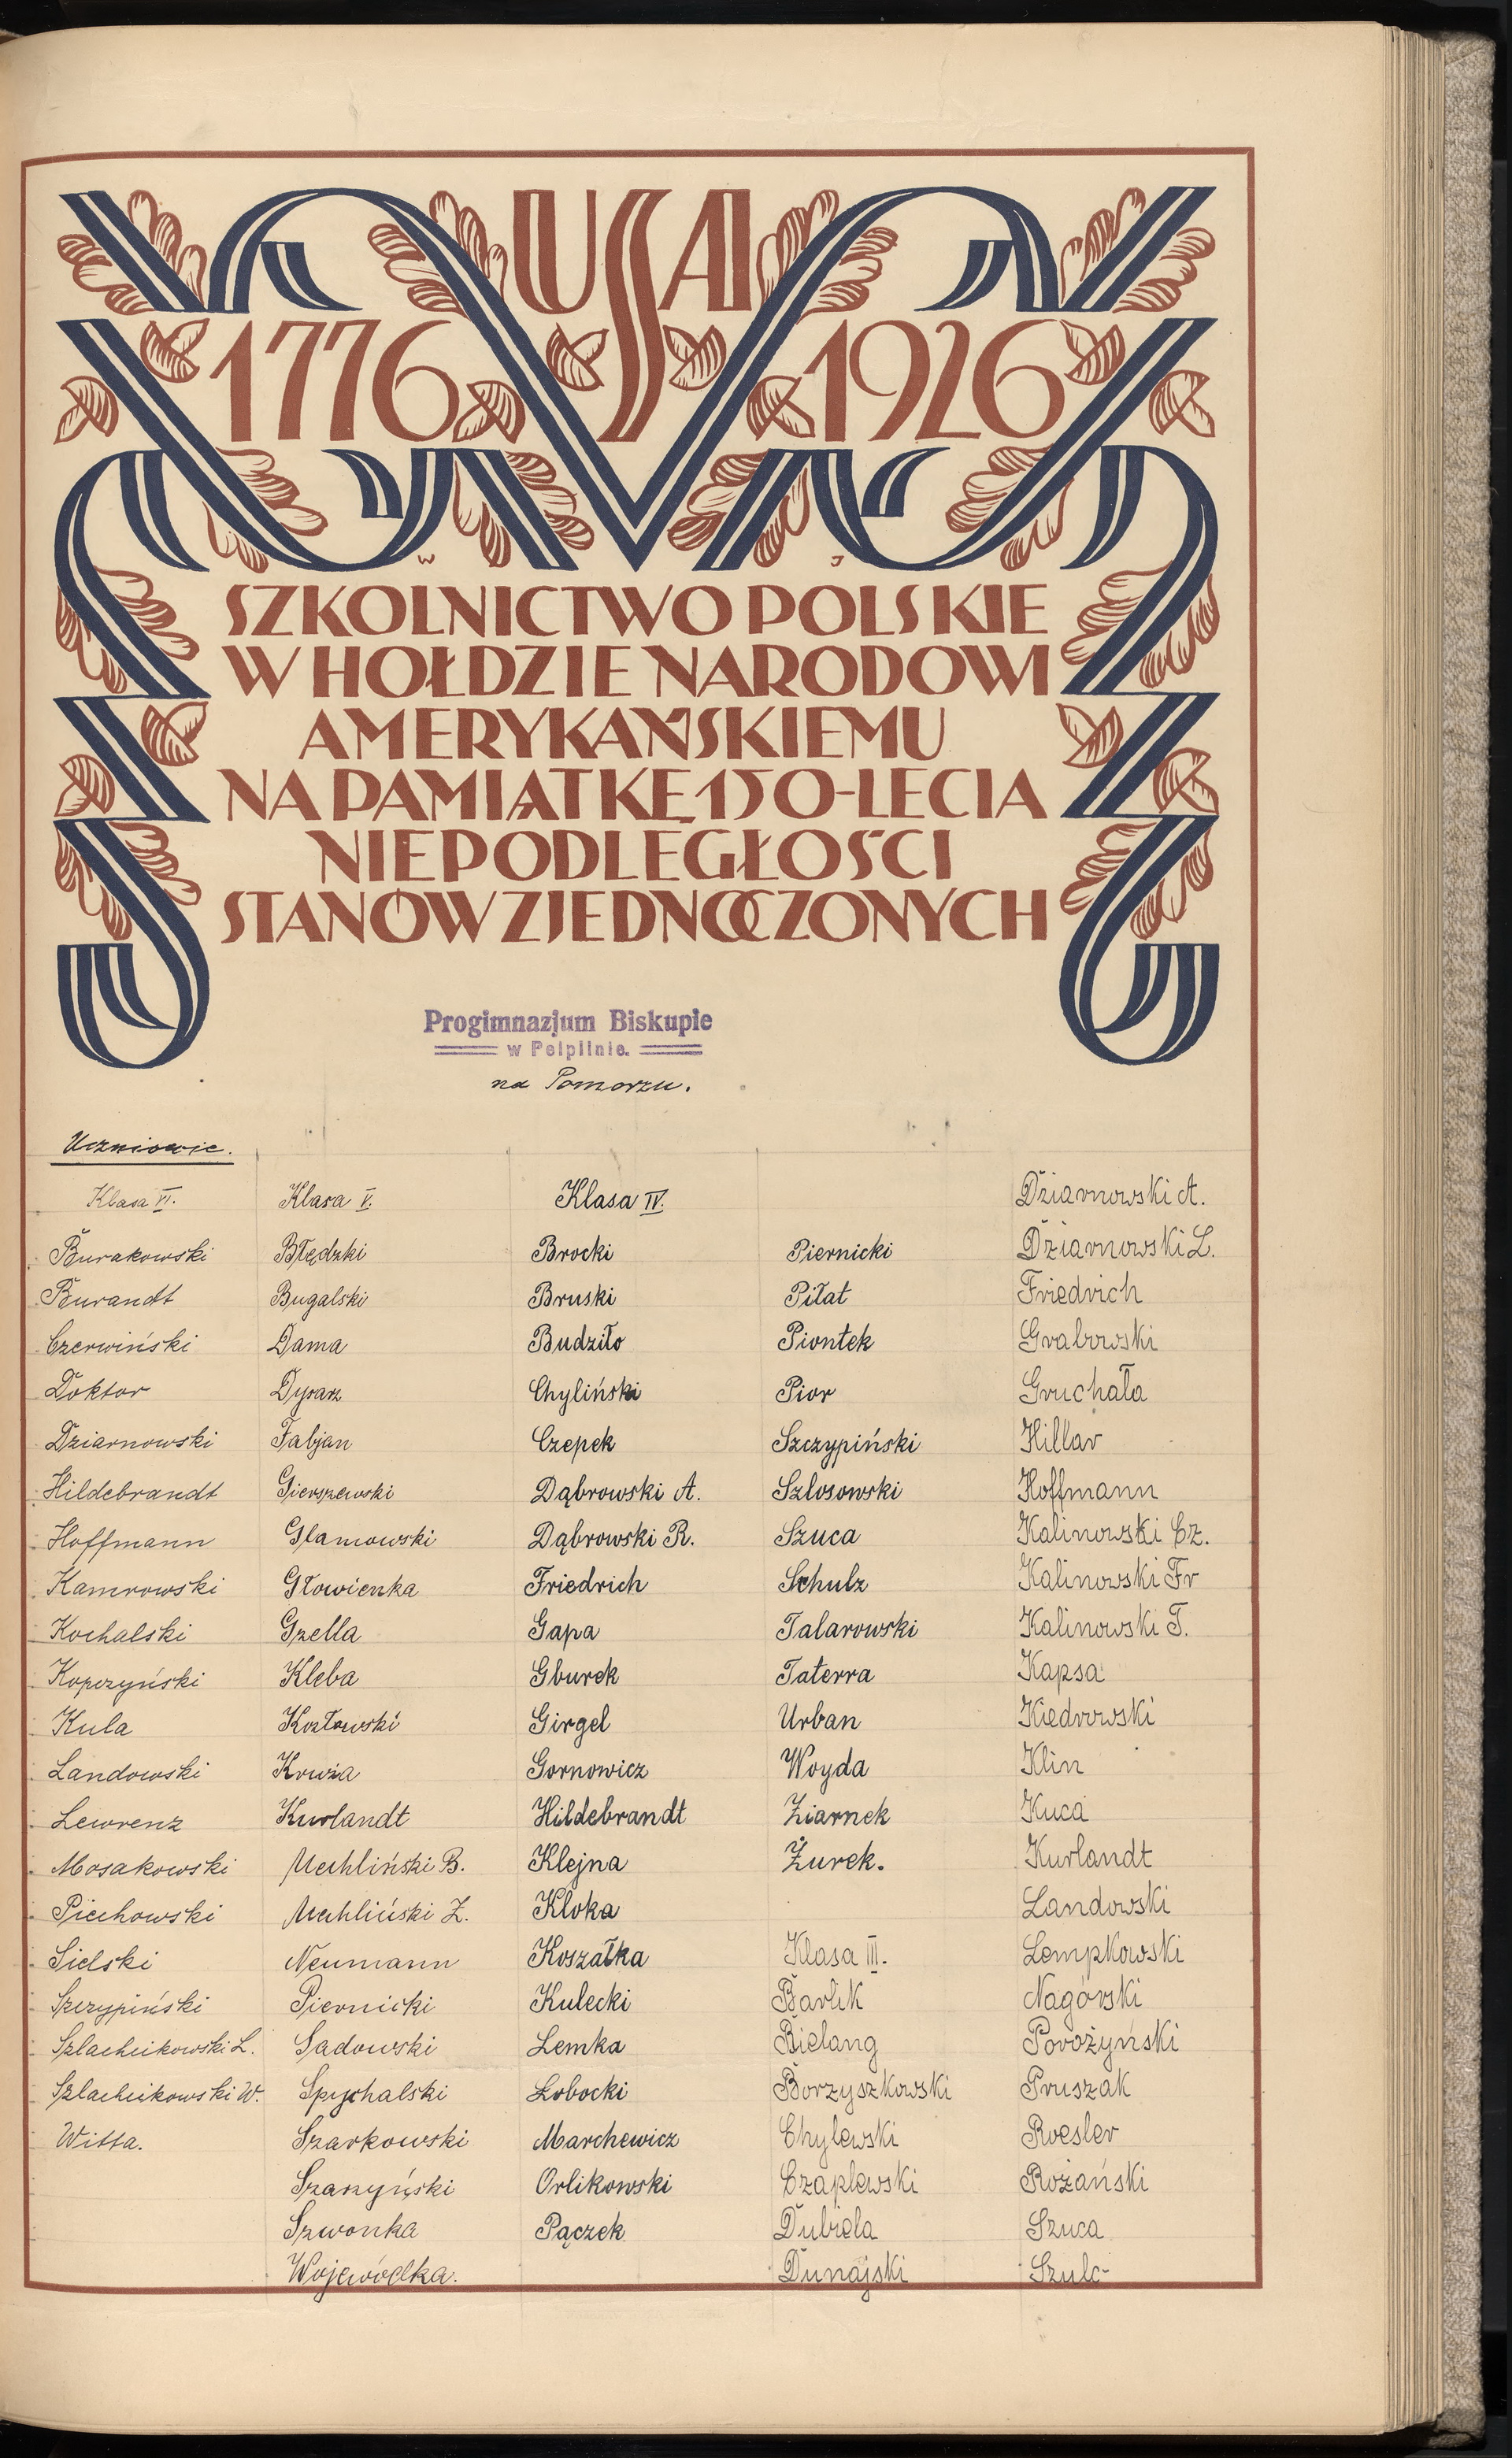 USA
1776 1926
W J
SZKOLNICTWO POLSKIE
W HOŁDZIE NARODOWI
AMERYKAŃSKIEMU
NA PAMIĄTKĘ 150-LECIA
NIEPODLEGŁOŚCI
STANÓW ZJEDNOCZONYCH
Progimnazjum Biskupie
w Pelplinie.
na Pomorzu.
Uczniowie.
Klasa VI.
Burakowski
Burandt
Czerwiński
Doktor
Dziarnowski
Hildebrandt
Hoffmann
Kamrowski
Kochalski
Kopczyński
Kula
Landowski
Lewrenz
Mosakowski
Piechowski
Sielski
Szczypiński
Szlachcikowski L.
Szlachcikowski W.
Witta.
Klasa V.
Błędzki
Bugalski
Dama
Dysarz
Fabjan
Gierszewski
Glamowski
Głowienka
Gzella
Kleba
Kozłowski
Krwza
Kurlandt
Mechliński B.
Mechliński Z.
Neumann
Piernicki
Sadowski
Spychalski
Szarkowski
Szaszyński
Szwonka
Wojewódka.
Klasa IV.
Brocki
Bruski
Budziło
Chyliński
Czepek
Dąbrowski A.
Dąbrowski R.
Friedrich
Gapa
Gburek
Girgel
Gornowicz
Hildebrandt
Klejna
Kloka
Koszałka
Kulecki
Lemka
Łobocki
Marchewicz
Orlikowski
Pączek
Piernicki
Piłat
Piontek
Pior
Szczypiński
Szlosowski
Szuca
Schulz
Talarowski
Taterra
Urban
Woyda
Ziarnek
Żurek.
Klasa III.
Barlik
Bielang
Borzyszkowski
Chylewski
Czaplewski
Dubiela
Dunajski
Dziarnowski A.
Dziarnowski L.
Friedrich
Grabowski
Gruchała
Hillar
Hoffmann
Kalinowski Cz.
Kalinowski Fr
Kalinowski T.
Kapsa
Kiedrowski
Klin
Kuca
Kurlandt
Landowski
Lempkowski
Nagórski
Porożyński
Pruszak
Roesler
Rożański
Szuca
Szulc